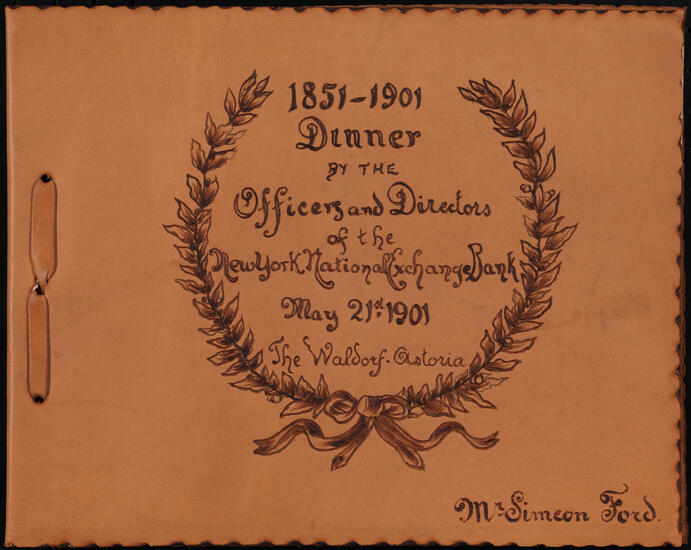 1851-1901
Dinner
BY THE
Officers and Directors
of the
New York National Exchange Bank
May 21st 1901
The Waldorf-Astoria
Mr Simeon Ford.